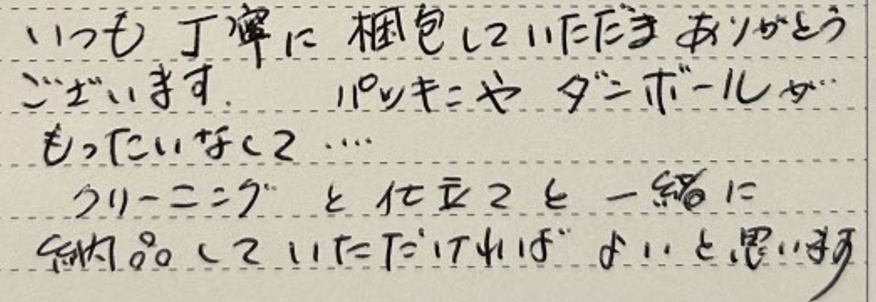 いつも 丁寧に 梱包していただき ありがとう
ございます. パッキンや ダンボールが
もったいなくて ‥‥
クリーニング と 仕立てと 一緒に
納品していただければ よいと思います